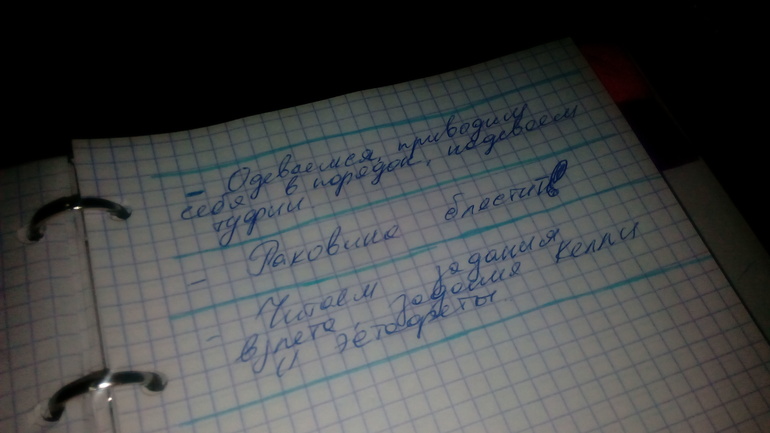 - Одеваемся, приводим
себя в порядок, надеваем
туфли
- Раковина блестит
- Читаем задания
взлёта, задания Келли
и эстафеты